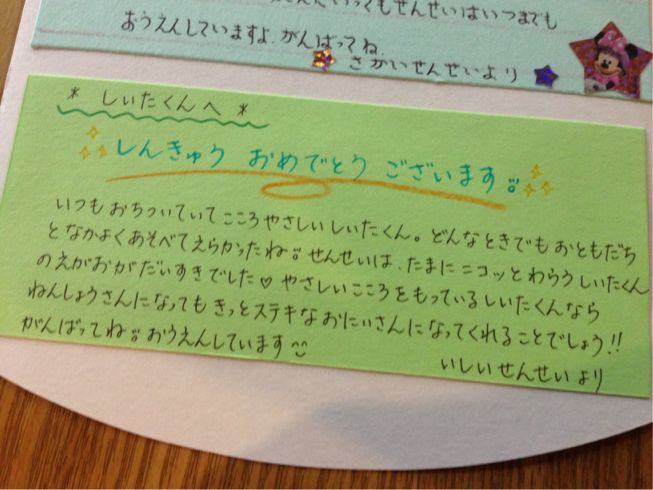 せんせいはいつまでも
おうえんしていますよ.がんばってね.
さかいせんせいより
* しいたくんへ *
しんきゅう おめでとう ございます
いつもおちついていてこころやさしいしいたくん。どんなときでもおともだち
となかよくあそべてえらかったね せんせいは、たまにニコッとわらうしいたくん
のえがおがだいすきでした♡ やさしいこころをもっているしいたくんなら
ねんしょうさんになってもきっとステキなおにいさんになってくれることでしょう!!
がんばってね おうえんしています
いしいせんせいより